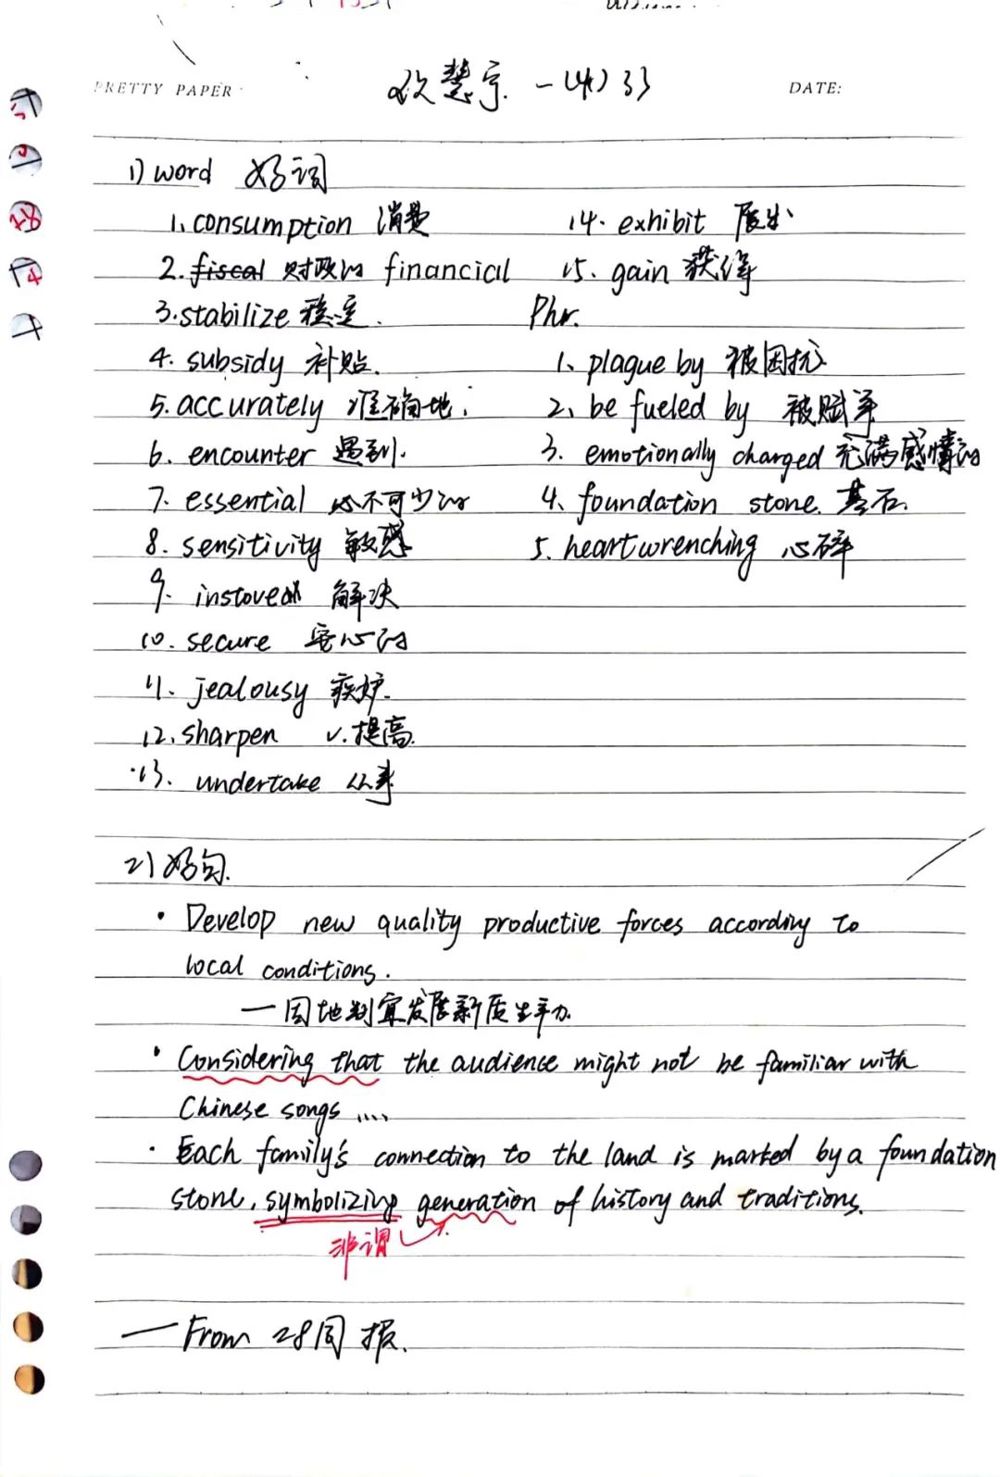 PRETTY PAPER
慧宇 -(4) 33
DATE:
1) word 好词
1. consumption 消费
2. fiscal 财政的 financial
3. stabilize 稳定.
4. subsidy 补贴.
5. accurately 准确地.
6. encounter 遇到.
7. essential 必不可少的
8. sensitivity 敏感
9. 解决
10. secure 安心的
11. jealousy 疾妒.
12. sharpen v.提高.
13. undertake 从事
14. exhibit 展出
15. gain 获得
Phr.
1. plague by 被困扰
2. be fueled by 被赋予
3. emotionally charged 充满感情的
4. foundation stone. 基石.
5. heartwrenching 心碎
2) 好句.
• Develop new quality productive forces according to
local conditions.
— 因地制宜发展新质生产力.
• Considering that the audience might not be familiar with
Chinese songs ....
• Each family's connection to the land is marked by a foundation
stone, symbolizing generation of history and traditions.
非谓
— From 28周报.